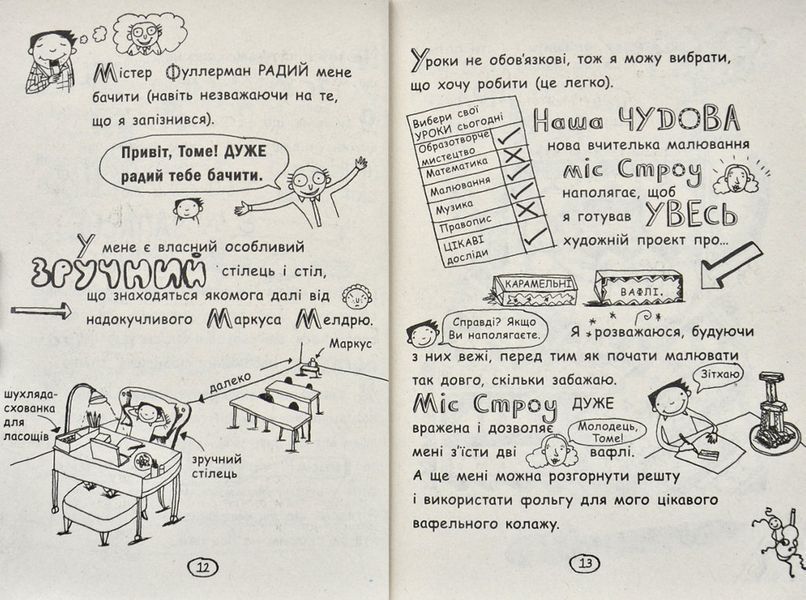 Містер Фуллерман РАДИЙ мене
бачити (навіть незважаючи на те,
що я запізнився).
Привіт, Томе! ДУЖЕ
радий тебе бачити.
У мене є власний особливий
ЗРУЧНИЙ стілець і стіл,
що знаходяться якомога далі від
надокучливого Маркуса Мелдрю.
Маркус
далеко
шухляда-
схованка
для
ласощів
зручний
стілець
12
Уроки не обов'язкові, тож я можу вибрати,
що хочу робити (це легко).
Вибери свої
УРОКИ сьогодні
Образотворче
мистецтво
Математика
Малювання
Музика
Правопис
ЦІКАВІ
досліди
Наша ЧУДОВА
нова вчителька малювання
міс Строу
наполягає, щоб
я готував УВЕСЬ
художній проект про...
КАРАМЕЛЬНІ
ВАФЛІ.
Справді? Якщо
Ви наполягаєте.
Я розважаюся, будуючи
з них вежі, перед тим як почати малювати
так довго, скільки забажаю.
Зітхаю
Міс Строу ДУЖЕ
вражена і дозволяє
Молодець,
Томе!
мені з'їсти дві вафлі.
А ще мені можна розгорнути решту
і використати фольгу для мого цікавого
вафельного колажу.
13